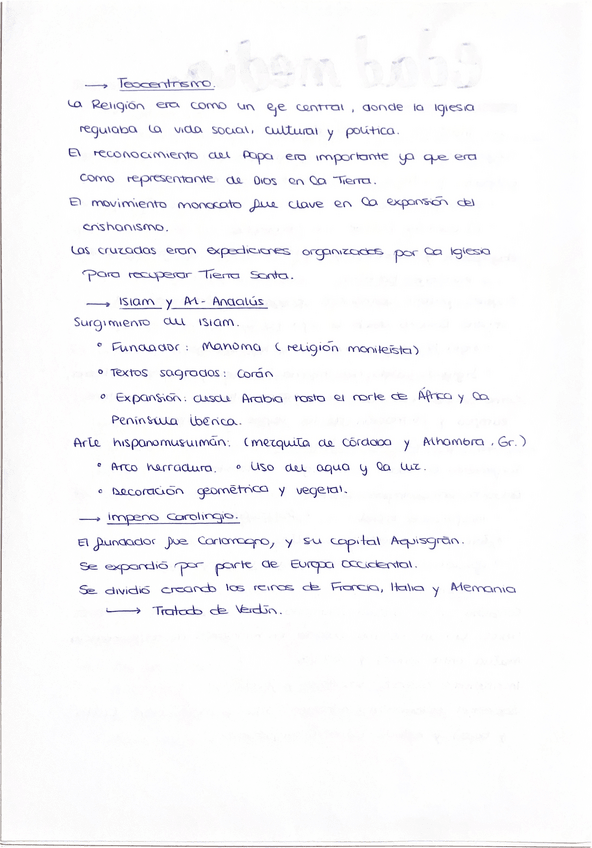 → Teocentrismo.
La Religión era como un eje central, donde la Iglesia
regulaba la vida social, cultural y política.
El reconocimiento del Papa era importante ya que era
como representante de Dios en la Tierra.
El movimiento monacato fue clave en la expansión del
cristianismo.
Las cruzadas eran expediciones organizadas por la Iglesia
para recuperar Tierra Santa.
→ Islam y Al-Andalús
Surgimiento del Islam.
° Fundador: Mahoma (religión monileísta)
° Textos sagrados: Corán
° Expansión: desde Arabia hasta el norte de África y la
Península ibérica.
Arte hispanomusulmán: (mezquita de Córdoba y Alhambra, Gr.)
° Arco herradura. ° Uso del agua y la luz.
° Decoración geométrica y vegetal.
→ Imperio Carolingio.
El fundador fue Carlomagno, y su capital Aquisgrán.
Se expandió por parte de Europa Occidental.
Se dividió creando los reinos de Francia, Italia y Alemania
→ Tratado de Verdún.